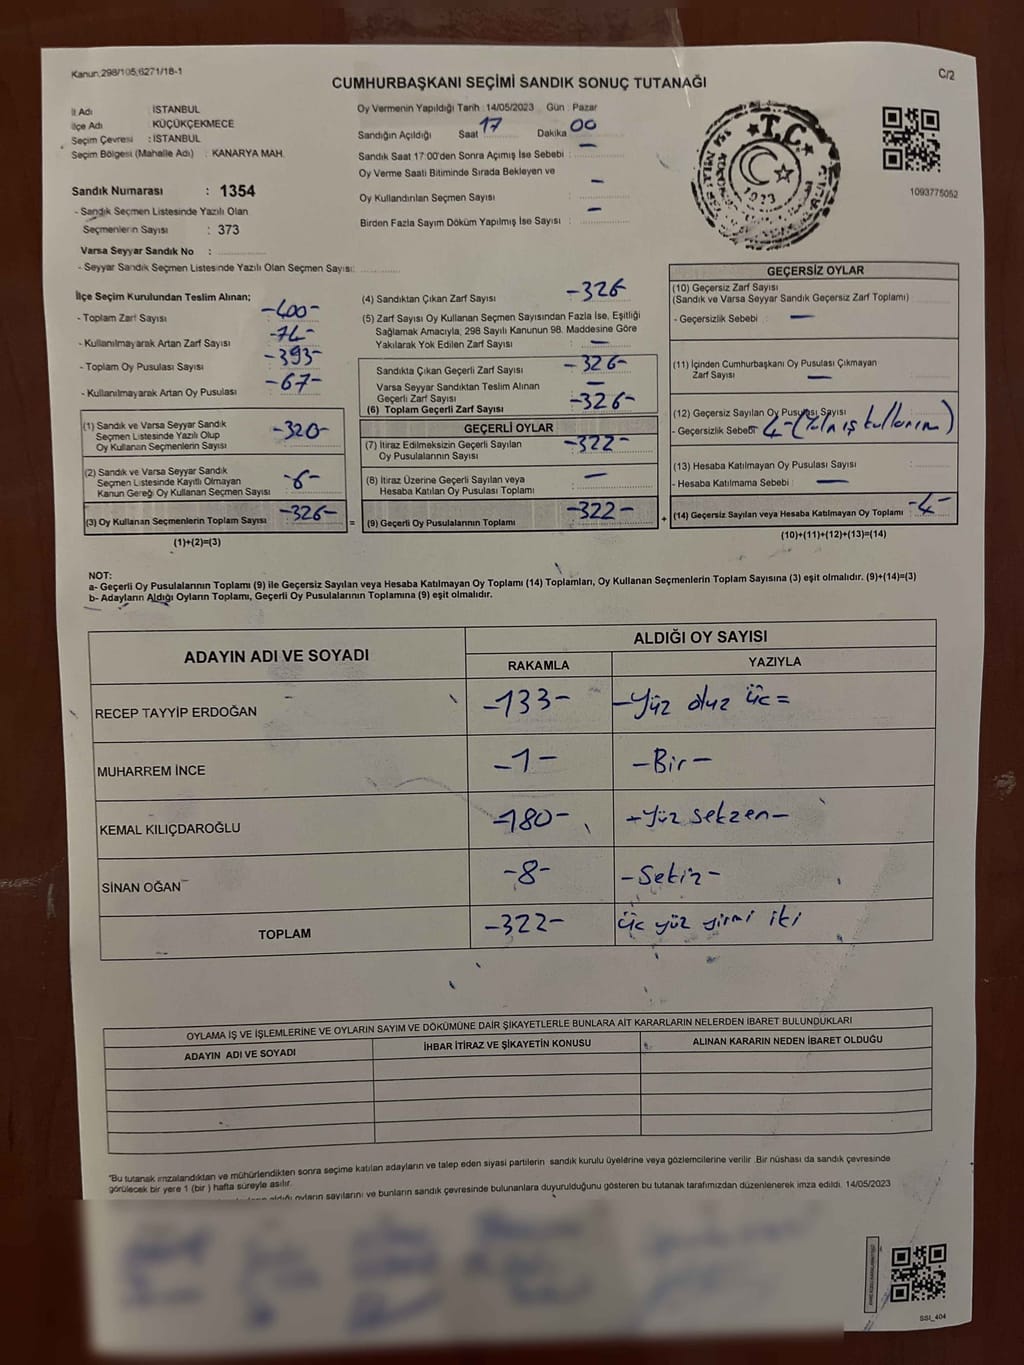 Kanun;298/105;6271/18-1
C/2
CUMHURBAŞKANI SEÇİMİ SANDIK SONUÇ TUTANAĞI
İl Adı : İSTANBUL
İlçe Adı : KÜÇÜKÇEKMECE
Seçim Çevresi : İSTANBUL
Seçim Bölgesi (Mahalle Adı) : KANARYA MAH.
Sandık Numarası : 1354
- Sandık Seçmen Listesinde Yazılı Olan
Seçmenlerin Sayısı : 373
Varsa Seyyar Sandık No :
- Seyyar Sandık Seçmen Listesinde Yazılı Olan Seçmen Sayısı:
Oy Vermenin Yapıldığı Tarih : 14/05/2023 Gün : Pazar
Sandığın Açıldığı Saat 17 Dakika 00
Sandık Saat 17:00'den Sonra Açımış İse Sebebi : -
Oy Verme Saati Bitiminde Sırada Bekleyen ve
Oy Kullandırılan Seçmen Sayısı : -
Birden Fazla Sayım Döküm Yapılmış İse Sayısı : -
T.C.
1923
1093775052
İlçe Seçim Kurulundan Teslim Alınan;
- Toplam Zarf Sayısı -400-
- Kullanılmayarak Artan Zarf Sayısı -74-
- Toplam Oy Pusulası Sayısı -393-
- Kullanılmayarak Artan Oy Pusulası -67-
(1) Sandık ve Varsa Seyyar Sandık
Seçmen Listesinde Yazılı Olup
Oy Kullanan Seçmenlerin Sayısı -320-
(2) Sandık ve Varsa Seyyar Sandık
Seçmen Listesinde Kayıtlı Olmayan
Kanun Gereği Oy Kullanan Seçmen Sayısı -6-
(3) Oy Kullanan Seçmenlerin Toplam Sayısı -326-
(1)+(2)=(3)
(4) Sandıktan Çıkan Zarf Sayısı -326-
(5) Zarf Sayısı Oy Kullanan Seçmen Sayısından Fazla İse, Eşitliği
Sağlamak Amacıyla, 298 Sayılı Kanunun 98. Maddesine Göre
Yakılarak Yok Edilen Zarf Sayısı : -
Sandıkta Çıkan Geçerli Zarf Sayısı -326-
Varsa Seyyar Sandıktan Teslim Alınan
Geçerli Zarf Sayısı -
(6) Toplam Geçerli Zarf Sayısı -326-
GEÇERLİ OYLAR
(7) İtiraz Edilmeksizin Geçerli Sayılan
Oy Pusulalarının Sayısı -322-
(8) İtiraz Üzerine Geçerli Sayılan veya
Hesaba Katılan Oy Pusulası Toplamı -
= (9) Geçerli Oy Pusulalarının Toplamı -322-
GEÇERSİZ OYLAR
(10) Geçersiz Zarf Sayısı
(Sandık ve Varsa Seyyar Sandık Geçersiz Zarf Toplamı)
- Geçersizlik Sebebi : -
(11) İçinden Cumhurbaşkanı Oy Pusulası Çıkmayan
Zarf Sayısı -
(12) Geçersiz Sayılan Oy Pusulası Sayısı
- Geçersizlik Sebebi 4-
(13) Hesaba Katılmayan Oy Pusulası Sayısı
- Hesaba Katılmama Sebebi : -
+ (14) Geçersiz Sayılan veya Hesaba Katılmayan Oy Toplamı -4-
(10)+(11)+(12)+(13)=(14)
NOT:
a- Geçerli Oy Pusulalarının Toplamı (9) ile Geçersiz Sayılan veya Hesaba Katılmayan Oy Toplamı (14) Toplamları, Oy Kullanan Seçmenlerin Toplam Sayısına (3) eşit olmalıdır. (9)+(14)=(3)
b- Adayların Aldığı Oyların Toplamı, Geçerli Oy Pusulalarının Toplamına (9) eşit olmalıdır.
ADAYIN ADI VE SOYADI
ALDIĞI OY SAYISI
RAKAMLA YAZIYLA
RECEP TAYYİP ERDOĞAN -133- -Yüz otuz üç=
MUHARREM İNCE -1- -Bir-
KEMAL KILIÇDAROĞLU -180- -Yüz seksen-
SİNAN OĞAN -8- -Sekiz-
TOPLAM -322- üç yüz yirmi iki
OYLAMA İŞ VE İŞLEMLERİNE VE OYLARIN SAYIM VE DÖKÜMÜNE DAİR ŞİKAYETLERLE BUNLARA AİT KARARLARIN NELERDEN İBARET BULUNDUKLARI
ADAYIN ADI VE SOYADI İHBAR İTİRAZ VE ŞİKAYETİN KONUSU ALINAN KARARIN NEDEN İBARET OLDUĞU
"Bu tutanak imzalandıktan ve mühürlendikten sonra seçime katılan adayların ve talep eden siyasi partilerin sandık kurulu üyelerine veya gözlemcilerine verilir .Bir nüshası da sandık çevresinde
görülecek bir yere 1 (bir ) hafta süreyle asılır.
aldığı oyların sayılarını ve bunların sandık çevresinde bulunanlara duyurulduğunu gösteren bu tutanak tarafımızdan düzenlenerek imza edildi. 14/05/2023
SSI_404